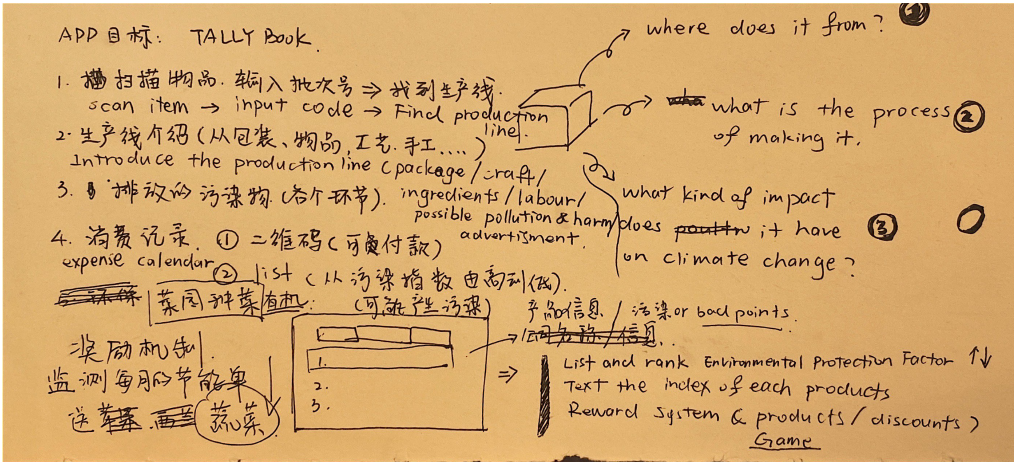 APP目标: TALLY Book.
1. 扫描物品. 输入批次号 ⇒ 找到生产线.
scan item → input code → Find production line.
2. 生产线介绍 (从包装、物品, 工艺. 手工....)
Introduce the production line (package / craft /
ingredients / labour /
possible pollution & harm /
advertisment.
3. 排放的污染物 (各个环节).
4. 消费记录. ① 二维码 (可负付款)
expense calendar ② list (从污染指数由高到低).
(可能产生污染)
菜园种菜 有机:
奖励机制.
监测每月的节能单
送 蔬菜
1.
2.
3.
where does it from? ①
what is the process ②
of making it.
what kind of impact
does it have ③
on climate change?
产品信息 / 污染 or bad points.
⇒ List and rank Environmental Protection Factor ↑↓
Text the index of each products
Reward system & products / discounts)
Game